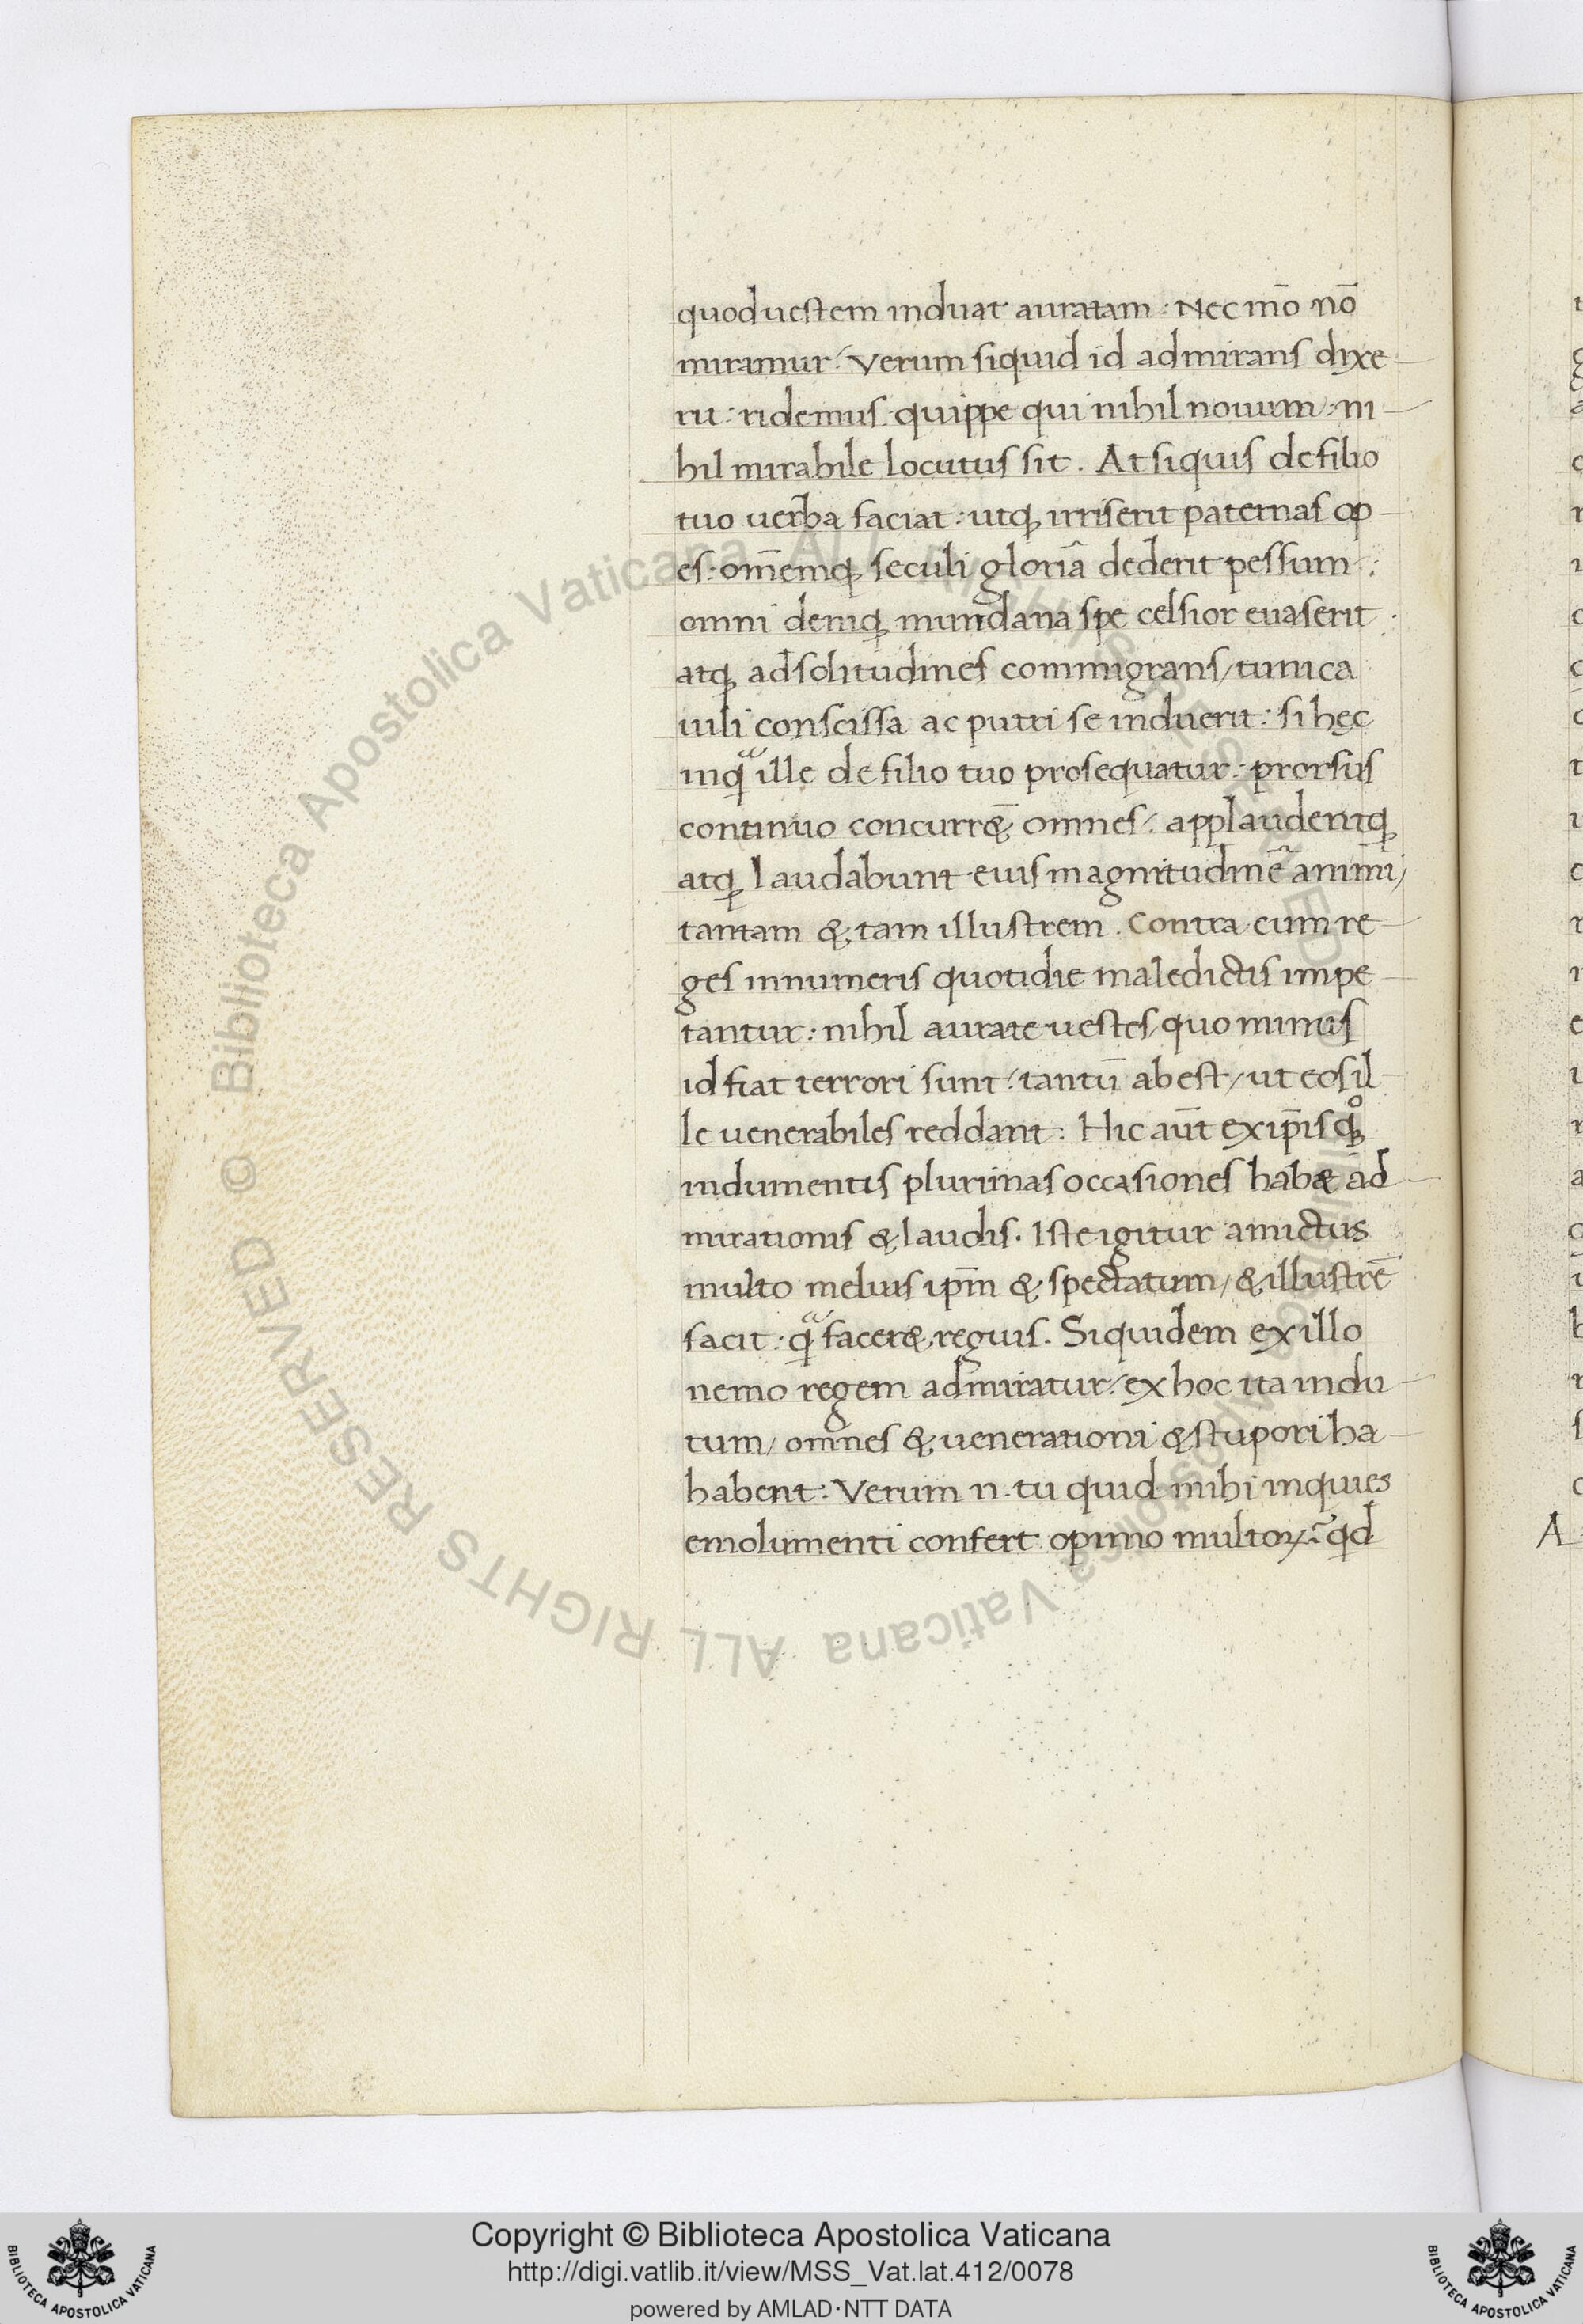 quod uestem induat auratam : Nec mo᷄ nō
miramur / Verum siquid id admirans dixe-
rit : ridemus quippe qui nihil nouum : ni-
hil mirabile locutus sit . At siquis de filio
tuo uerba faciat : utq; irriserit paternas op-
es : om̄emq; seculi gloriā dederit pessum :
omni deniq; mundana spe celsior euaserit .
atq; ad solitudines commigrans / tunica
uili conscissa ac putri se induerit : si hęc
inqͣ ille de filio tuo prosequatur : prorsus
continuo concurr&̄ omnes / applaudentq;
atq; laudabunt eius magnitudinē animi /
tantam & tam illustrem . Contra cum re-
ges innumeris quotidie maledictis impe-
tantur : nihil aurate uestes / quo minus
id fiat terrori sunt / tantū abest / ut eos il-
le uenerabiles reddant : Hic aūt ex ip̄is qͦq;
indumentis plurimas occasiones hab& ad-
mirationis & laudis . Iste igitur amictus
multo melius ip̄m & spectatum / & illustrē
facit : qͣ facer& regius . Siquidem ex illo
nemo regem admiratur / ex hoc ita indu-
tum / omnes & uenerationi & stupori ha-
habent : Verum n tu quid mihi inquies
emolumenti confert opinio multoꝝ : qd
A
Copyright © Biblioteca Apostolica Vaticana
http://digi.vatlib.it/view/MSS_Vat.lat.412/0078
powered by AMLAD·NTT DATA
© Biblioteca Apostolica Vaticana ALL RIGHTS RESERVED
© Biblioteca Apostolica Vaticana ALL RIGHTS RESERVED
BIBLIOTECA APOSTOLICA VATICANA
BIBLIOTECA APOSTOLICA VATICANA